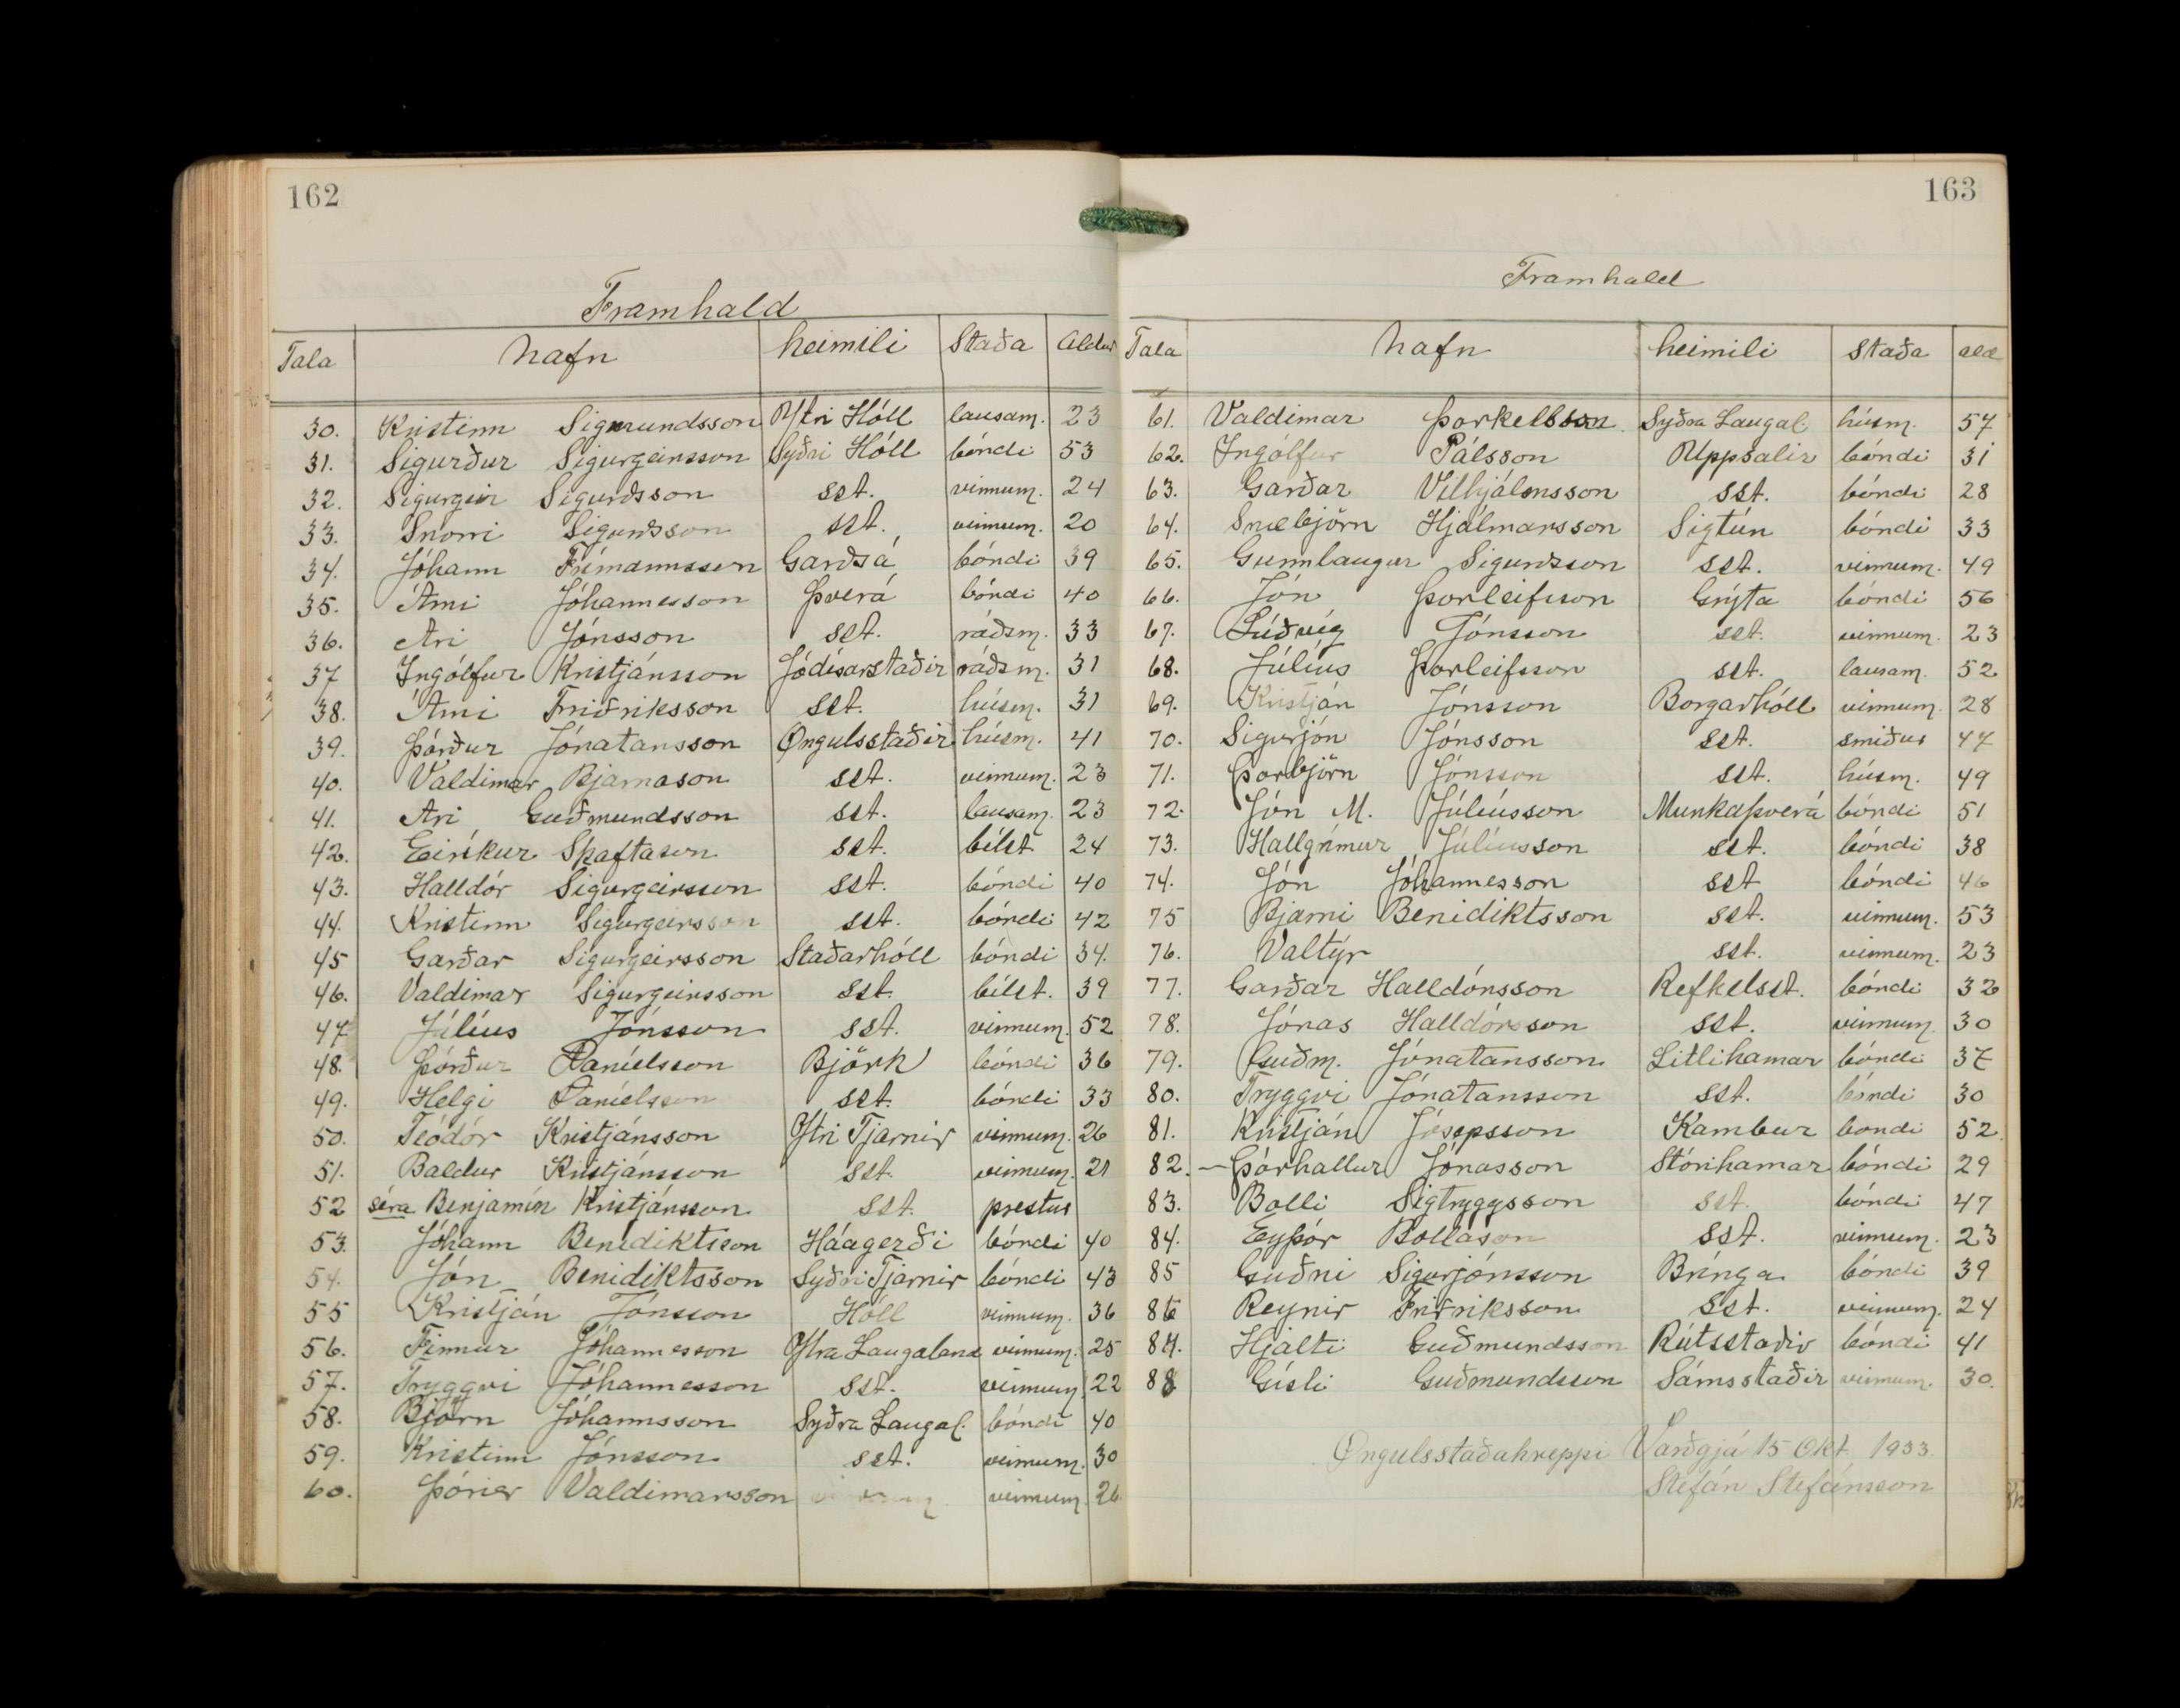 162
Framhald
Tala Nafn heimili Staða Aldur
30. Kristinn Sigmundsson Ytri Hóll lausam. 23
31. Sigurður Sigurgeirsson Syðri Hóll bóndi 53
32. Sigurgeir Sigurðsson sst. vinnum. 24
33. Snorri Sigurðsson sst. vinnum. 20
34. Jóhann Frímannsson Garðsá bóndi 39
35. Árni Jóhannesson Þverá bóndi 40
36. Ari Jónsson sst. ráðsm. 33
37 Ingólfur Kristjánsson Jódísarstaðir ráðsm. 31
38. Árni Friðriksson sst. húsm. 31
39. Þórður Jónatansson Öngulsstaðir húsm. 41
40. Valdimar Bjarnason sst. vinnum. 23
41. Ari Guðmundsson sst. lausam. 23
42. Eiríkur Skaftason sst. bílst. 24
43. Halldór Sigurgeirsson sst. bóndi 40
44. Kristinn Sigurgeirsson sst. bóndi 42
45 Garðar Sigurgeirsson Staðarhóll bóndi 34.
46. Valdimar Sigurgeirsson sst. bílst. 39
47 Júlíus Jónsson sst. vinnum. 52
48. Þórður Daníelsson Björk bóndi 36
49. Helgi Daníelsson sst. bóndi 33
50. Teódór Kristjánsson Ytri Tjarnir vinnum. 26
51. Baldur Kristjánsson sst. vinnum. 21
52 séra Benjamín Kristjánsson sst. prestur
53. Jóhann Benediktsson Háagerði bóndi 40
54. Jón Benidiktsson Syðri Tjarnir bóndi 43
55 Kristján Jónsson Hóll vinnum. 36
56. Finnur Jóhannesson Ytra Laugaland vinnum. 25
57. Tryggvi Jóhannesson sst. vinnum. 22
58. Björn Jóhannsson Syðra Laugal. bóndi 40
59. Kristinn Jónsson sst. vinnum. 30
60. Þórier Valdimarsson vinnum. 26
163
Framhald
Tala Nafn heimili staða ald
61. Valdimar Þorkelsson Syðra Laugal. húsm. 57
62. Ingólfur Pálsson Uppsalir bóndi 31
63. Garðar Vilhjálmsson sst. bóndi 28
64. Snæbjörn Hjálmarsson Sigtún bóndi 33
65. Gunnlaugur Sigurðsson sst. vinnum. 49
66. Jón Þorleifsson Grýta bóndi 56
67. Lúðvíg Jónsson sst. vinnum. 23
68. Júlíus Þorleifsson sst. lausam. 52
69. Kristján Jónsson Borgarhóll vinnum. 28
70. Sigurjón Jónsson sst. smiður 47
71. Þorbjörn Jónsson sst. húsm. 49
72. Jón M. Júlíusson Munkaþverá bóndi 51
73. Hallgrímur Júlíusson sst. bóndi 38
74. Jón Jóhannesson sst bóndi 46
75 Bjarni Benidiktsson sst. vinnum. 53
76. Valtýr sst. vinnum. 23
77. Garðar Halldórsson Refkelsst. bóndi 32
78. Jónas Halldórsson sst. vinnum. 30
79. Guðm. Jónatansson Litlihamar bóndi 37
80. Tryggvi Jónatansson sst. bóndi 30
81. Kristján Jósepsson Kambur bondi 52
82. – Þórhallur Jónasson Stórihamar bóndi 29
83. Bolli Sigtryggsson sst. bóndi 47
84. Eyþór Bollason sst. vinnum. 23
85 Guðni Sigurjónsson Bringa bóndi 39
86 Reynir Friðriksson sst. vinnum. 24
87. Hjalti Guðmundsson Rútsstaðir bóndi 41
88 Gísli Guðmundsson Sámsstaðir vinnum. 30.
Öngulsstaðahreppi Varðgjá 15 Okt. 1933.
Stefán Stefánsson